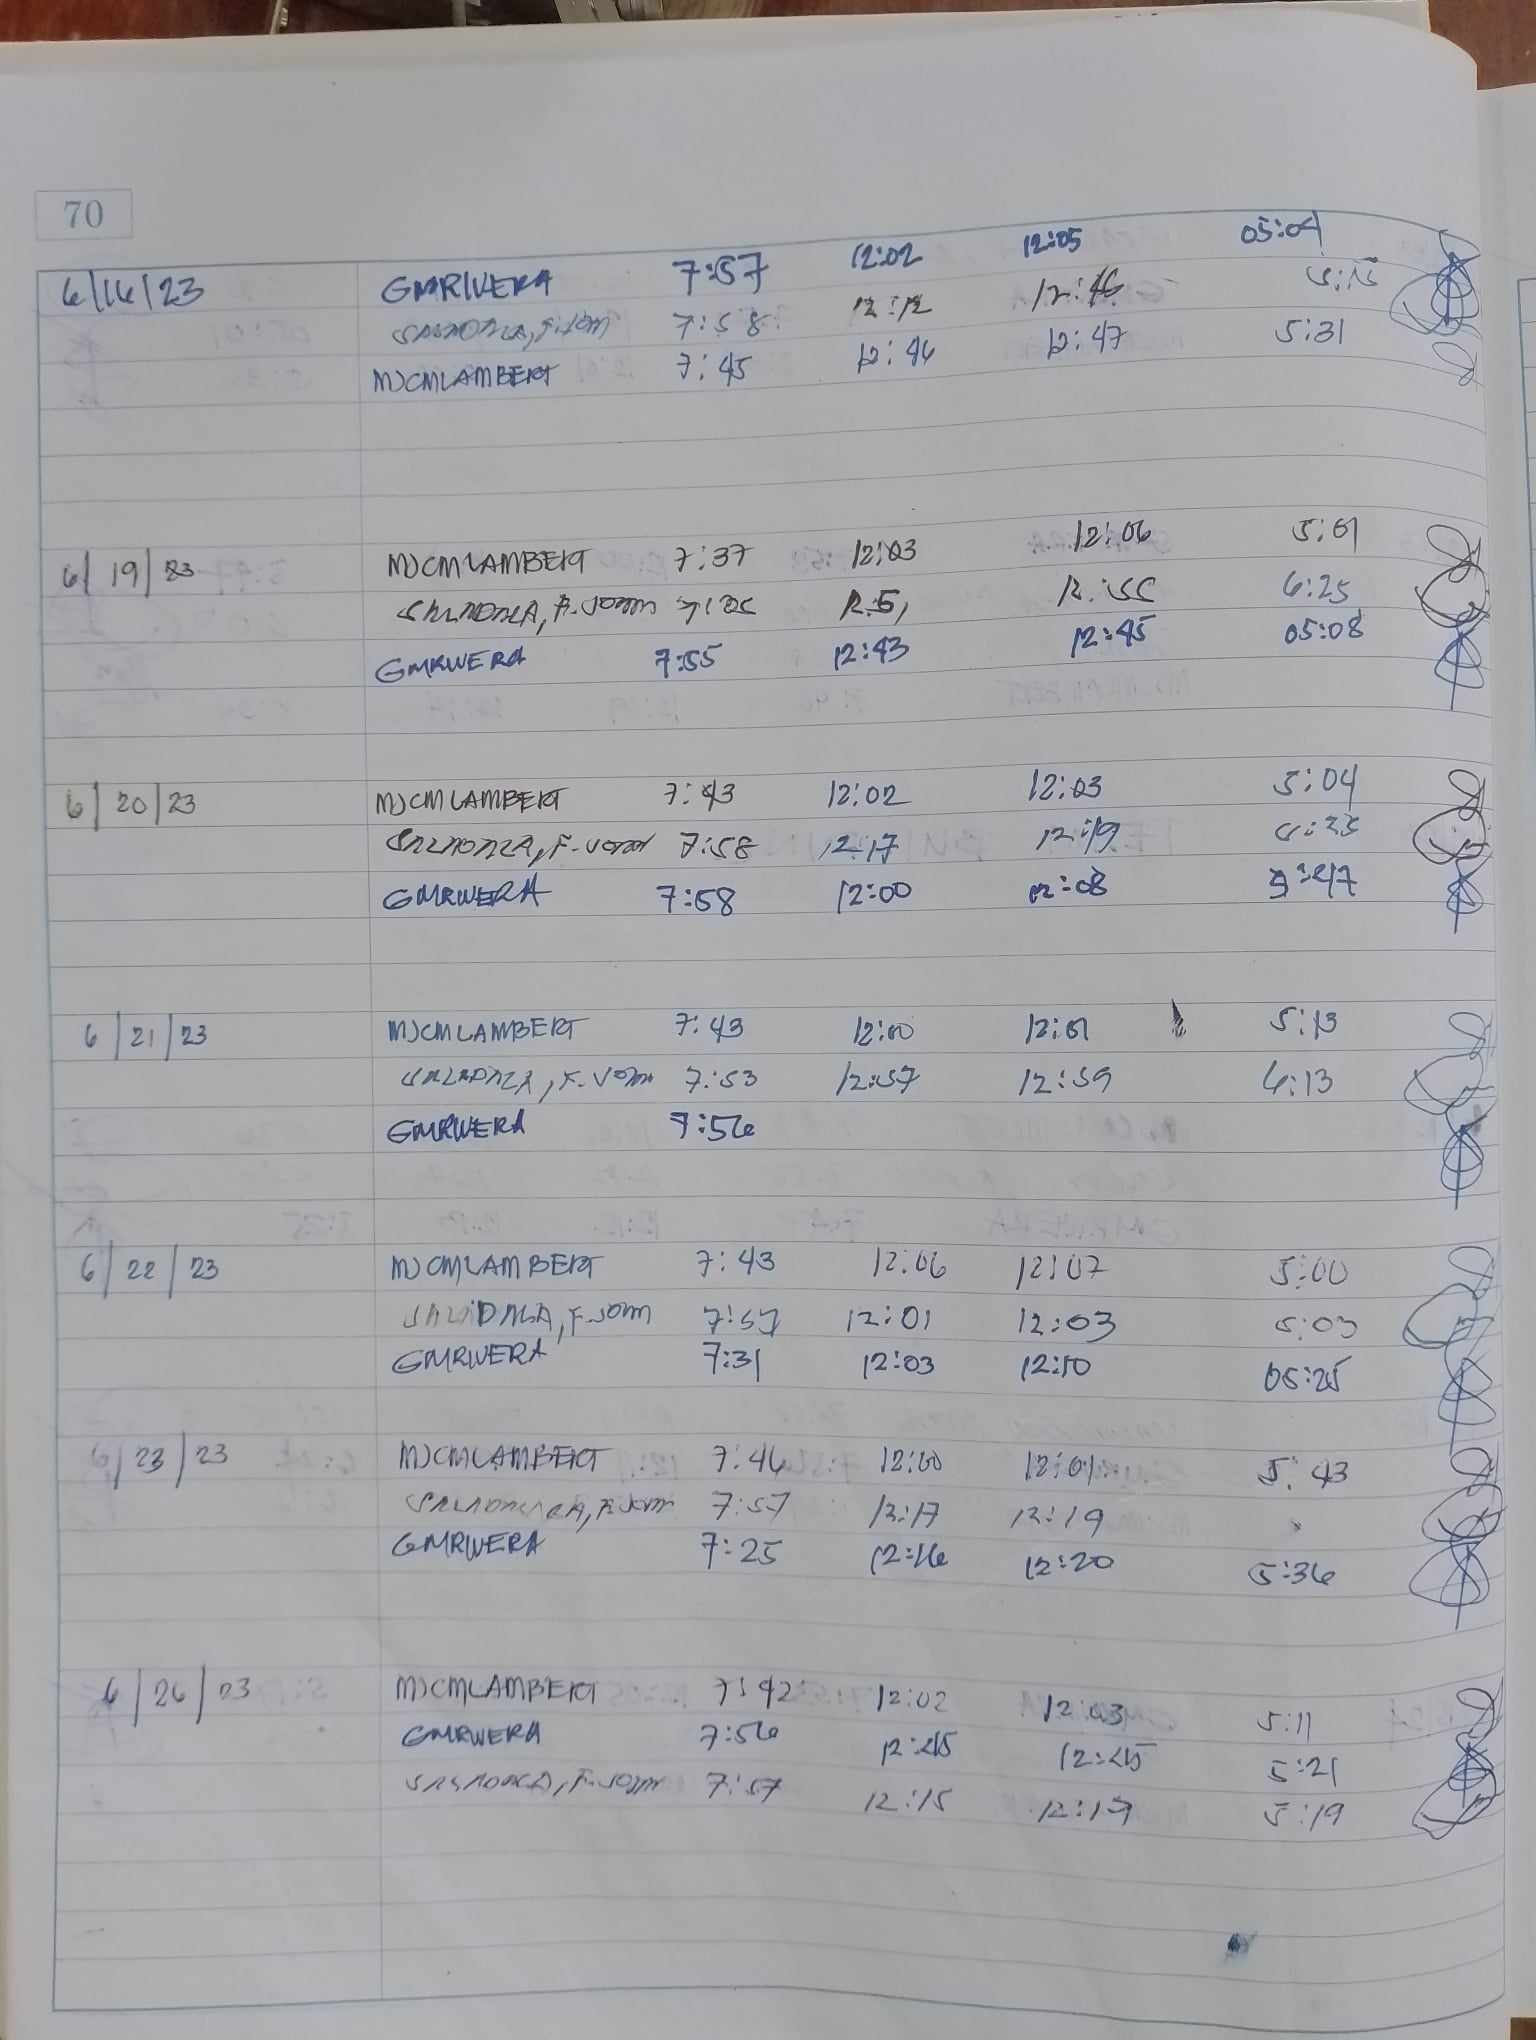 70
6/16/23 GMRIVERA 7:57 12:02 12:05 05:04
7:58 12:12 12:46 5:15
MJCMLAMBERT 7:45 12:46 12:47 5:31
6/19/23 MJCMLAMBERT 7:37 12:03 12:06 5:01
F. John 6:25
GMRIVERA 7:55 12:43 12:45 05:08
6/20/23 MJCMLAMBERT 7:43 12:02 12:03 5:04
7:58 12:17 12:19
GMRIVERA 7:58 12:00 12:08 5:47
6/21/23 MJCMLAMBERT 7:43 12:00 12:01 5:13
F. John 7:53 12:57 12:59 6:13
GMRIVERA 7:56
6/22/23 MJCMLAMBERT 7:43 12:06 12:07 5:00
F. John 7:57 12:01 12:03 5:03
GMRIVERA 7:31 12:03 12:10 05:25
6/23/23 MJCMLAMBERT 7:46 12:00 12:01 5:43
F. John 7:57 12:17 12:19
GMRIVERA 7:25 12:16 12:20 5:36
6/26/23 MJCMLAMBERT 7:42 12:02 12:03 5:11
GMRIVERA 7:56 12:45 12:45 5:21
F. John 7:57 12:15 12:17 5:19